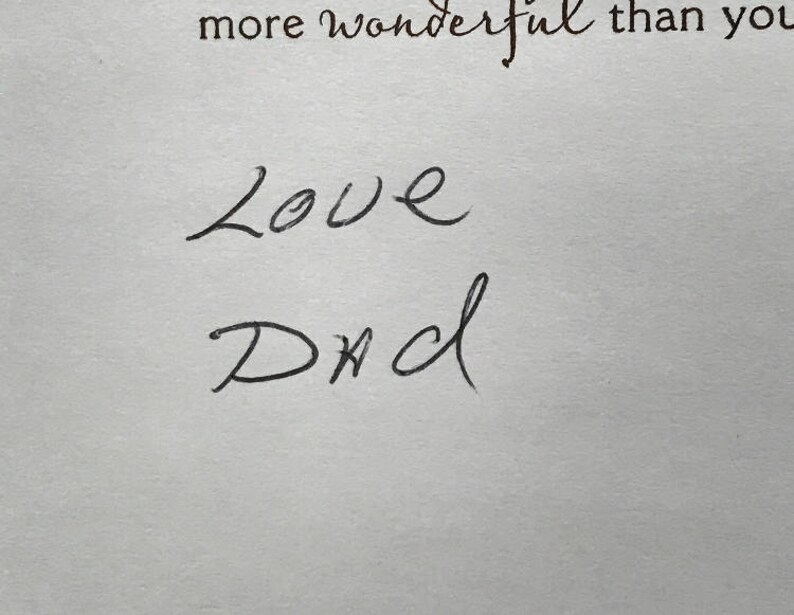 more wonderful than you
Love
Dad